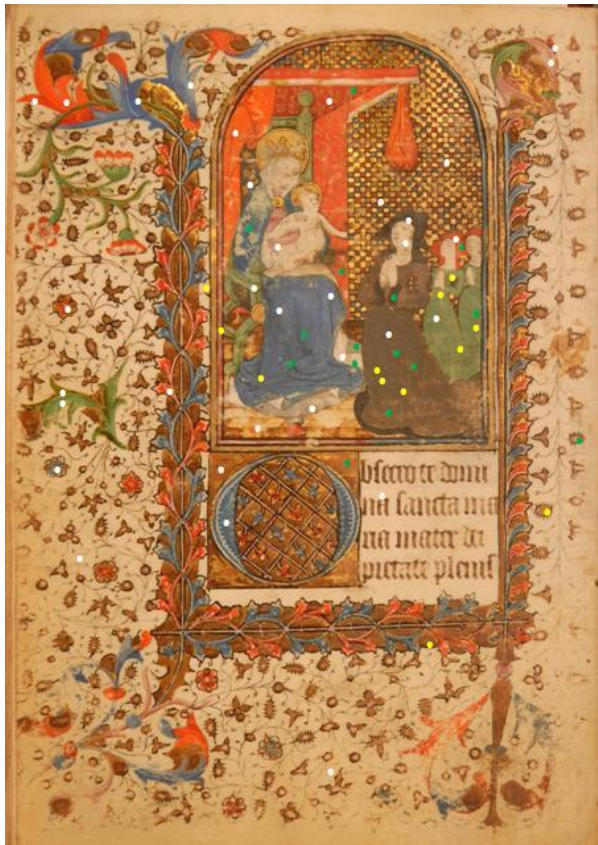 obsecro te domi
na sancta ma
ria mater dei
pietate pleniss